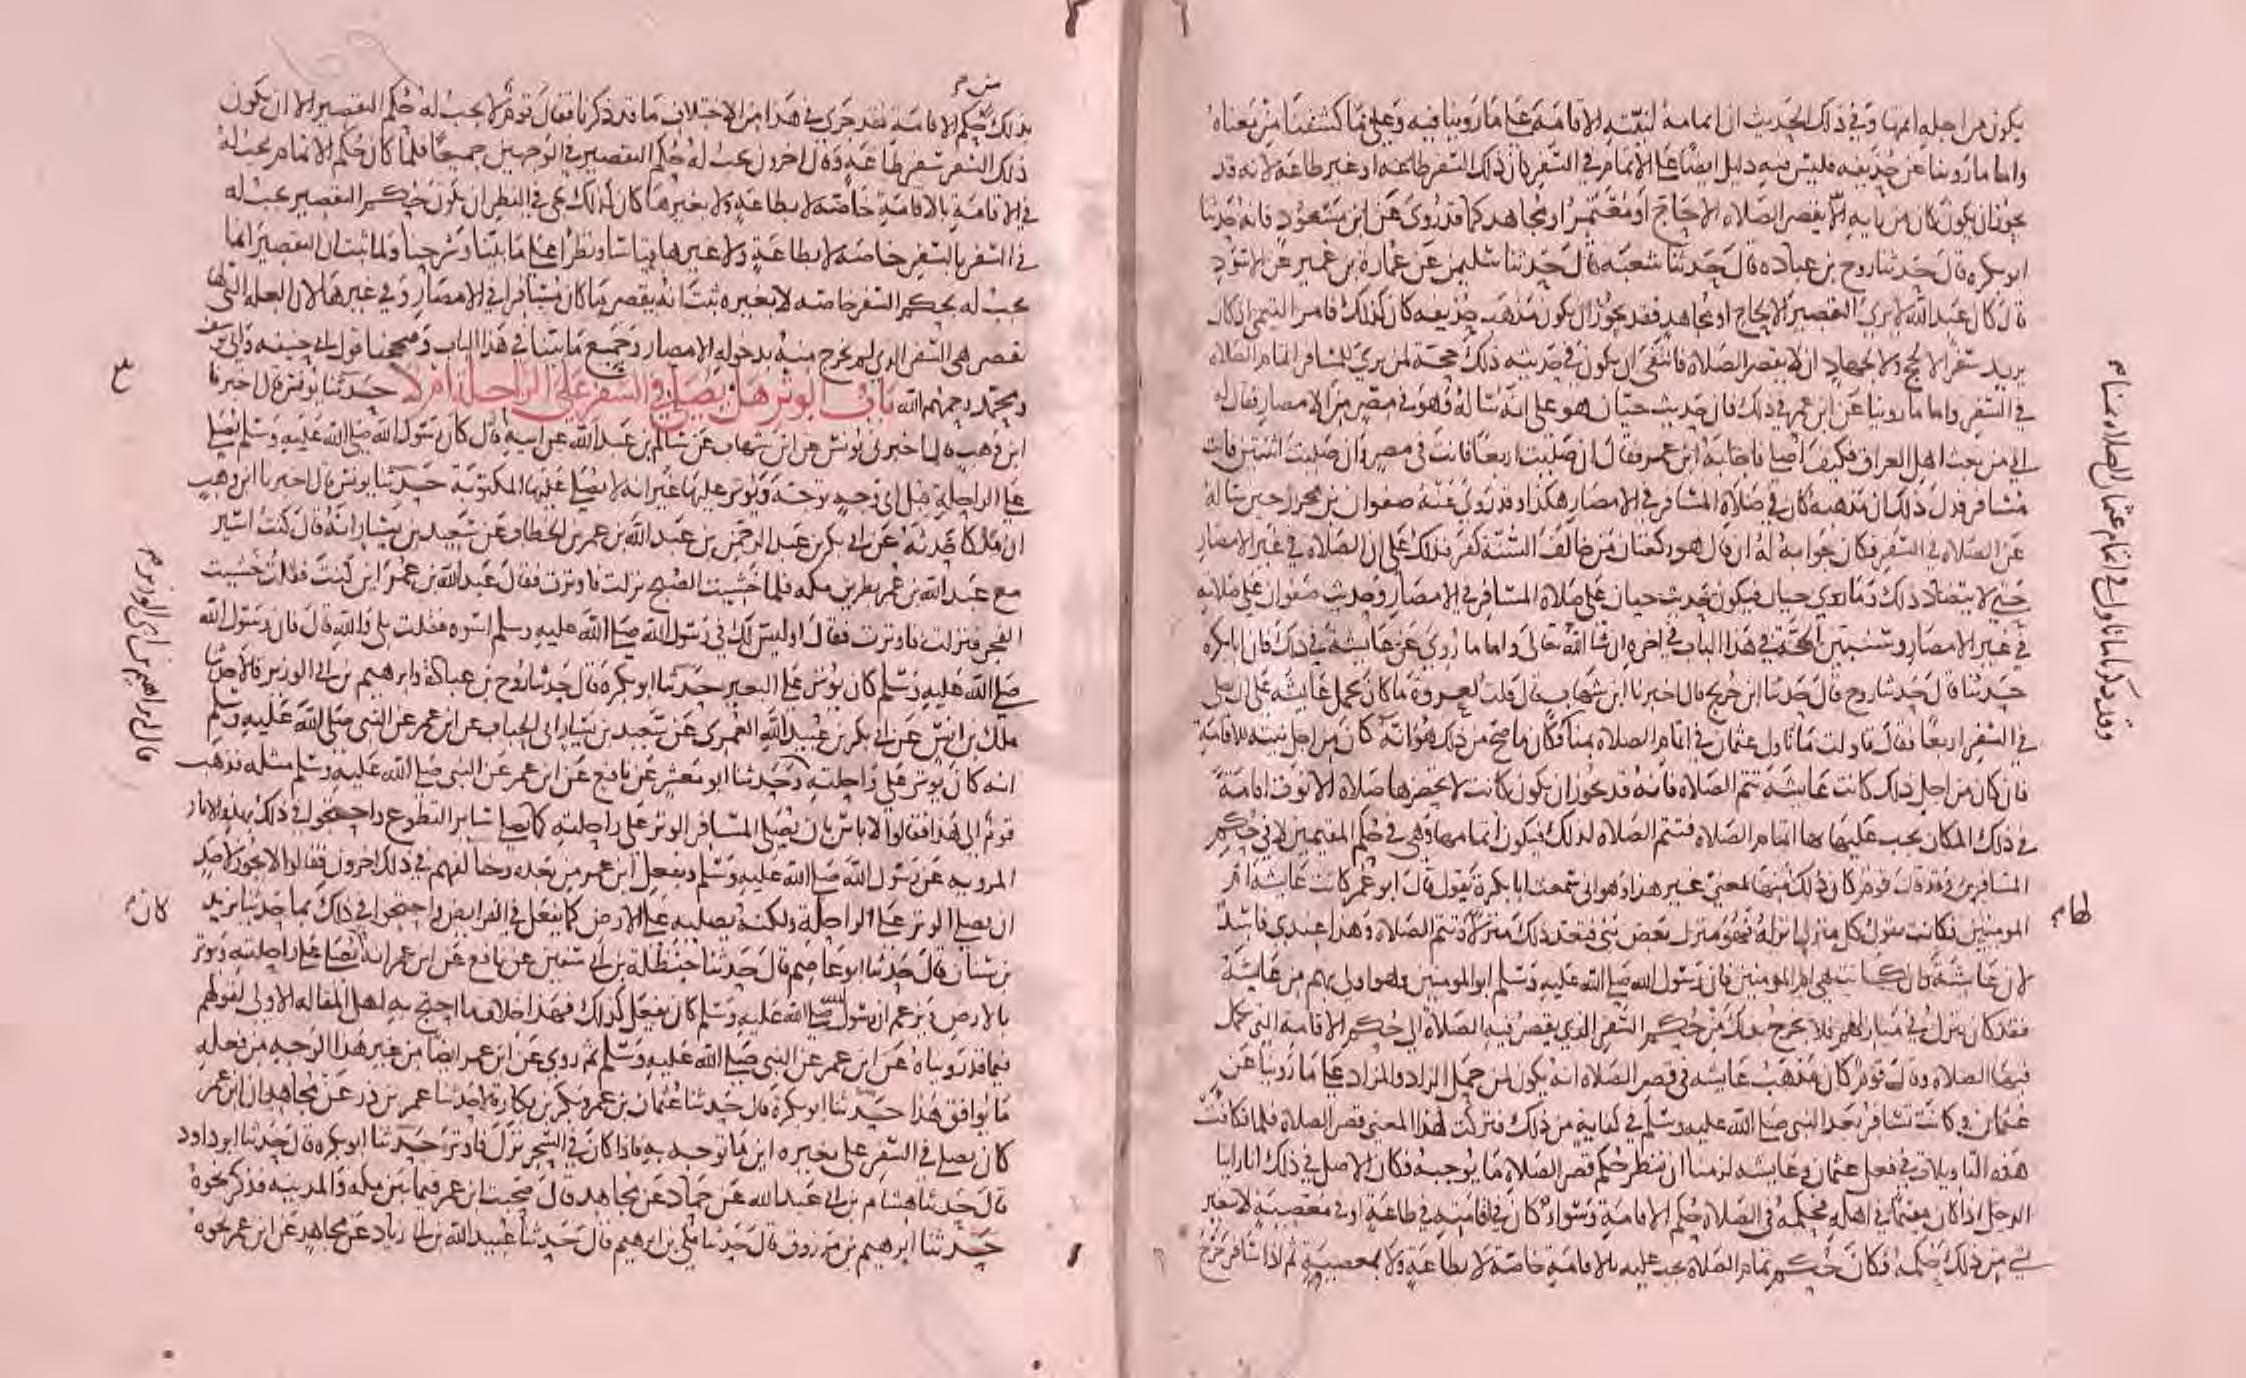 يكون من اجله اتمها وفي ذلك الحديث ان اتمامه لنيته الاقامة على ما روينا فيه وعلى ما كشفنا من معناه
واما ما روينا عن حذيفه فليس فيه دليل ايضا على الاتمام في السفر كان ذلك السفر طاعه او غير طاعه لانه قد
يجوز ان يكون كان من رايه الا يقصر الصلاه الا حاج او معتمر او مجاهد كما قد روي عن ابن مسعود فانه حدثنا
ابو بكره قال حدثنا روح بن عباده قال حدثنا شعبه قال حدثنا سليمن عن عمارة بن عمير عن الاسود
قال كان عبد الله لا يرى التقصير الا لحاج او مجاهد فقد يجوز ان يكون مذهب حذيفه كان كذلك فامر التيمي اذ كان
يريد سفرا لا لحج ولا لجهاد ان لا يقصر الصلاة فانتفى ان يكون في حديثه ذلك حجة لمن يرى للمسافر اتمام الصلاه
في السفر واما ما روينا عن ابن عمر في ذلك فان حديث حيان هو على انه ساله وهو في مصر من الامصار فقال له
اني من بعث اهل العراق فكيف اصلي فاجابه ابن عمر فقال ان صليت اربعا فانت في مصر وان صليت اثنتين فانت
مسافر فدل ذلك ان مذهبه كان في صلاة المسافر في الامصار هكذا وقد روي عنه صفوان بن محرز حين ساله
عن الصلاه في السفر فكان جوابه له ان قال هو ركعتان من خالف السنة كفر فذلك على ان الصلاة في غير الامصار
حتى لا يتضاد ذلك وما روى حيان فيكون حديث حيان على صلاة المسافر في الامصار وحديث صفوان على صلاته
في غير الامصار وسنبين الحجة في هذا الباب في اخره ان شا الله تعالى واما ما روي عن عايشة في ذلك فان ابا بكره
حدثنا قال حدثنا روح قال حدثنا ابن جريج قال اخبرنا ابن شهاب قال قلت لعروة ما كان يحمل عايشه على ان تصلي
في السفر اربعا فقال تاولت ما تاول عثمان في اتمام الصلاه بمنا فكان ما صح من ذلك هو انه كان من اجل نيته للاقامة
فان كان من اجل ذلك كانت عايشة تتم الصلاة فانه قد يجوز ان يكون كانت لا يحضرها صلاة الا نوت اقامة
في ذلك المكان يجب عليها بها اتمام الصلاه فتتم الصلاه لذلك فيكون اتمامها وهي في حكم المقيمين لا في حكم
المسافرين وقد قال قوم كان ذلك منها لمعنى غير هذا وهو اني سمعت ابا بكرة يقول قال ابو عمر كانت عايشة ام
المومنين فكانت تقول كل منزل انزله فهو منزل بعض بني فتعد ذلك منزلا وتتم الصلاة وهذا عندي فاسد
لان عايشة وان كانت هي ام المومنين فان رسول الله صلى الله عليه وسلم ابو المومنين وهو اولى بهم من عايشة
فقد كان ينزل في منازلهم فلا يخرج بذلك من حكم السفر الذي يقصر فيه الصلاة الى حكم الاقامة التي تكمل
فيها الصلاه وقال قوم كان مذهب عايشه في قصر الصلاه انه يكون لمن حمل الزاد والمزاد على ما روينا عن
عثمان وكانت تسافر بعد النبي صلى الله عليه وسلم في كفاية من ذلك فتركت لهذا المعنى قصر الصلاة فلما تكافت
هذه التاويلات في فعل عثمان وعايشه لزمنا ان ننظر حكم قصر الصلاة ما يوجبه فكان الاصل في ذلك انا راينا
الرجل اذا كان مقيما في اهله فحكمه في الصلاه حكم الاقامة وسواء كان في اقامته في طاعة او في معصية لا يغير
شي من ذلك حكمه فكان حكم تمام الصلاة يجب عليه بالاقامة خاصة لا بطاعة ولا بمعصية ثم اذا سافر خرج
وقد ذكرنا ما تاول في اتمام عثمان الصلاه بمنا
بذلك من حكم الاقامة فقد جرى في هذا من الاختلاف ما قد ذكرنا فقال قوم لا يجب له حكم التقصير الا ان يكون
ذلك السفر سفر طاعة وقال اخرون يجب له حكم التقصير في الوجهين جميعا فلما كان حكم الاتمام يجب له
في الاقامة بالاقامة خاصة لا بطاعة ولا بغيرها كان كذلك يجي في النظر ان يكون حكم التقصير يجب له
في السفر بالسفر خاصه لا بطاعة ولا غيرها قياسا ونظرا على ما بينا وشرحنا ولما ثبت ان التقصير انما
يجب له بحكم السفر خاصه لا بغيره ثبت انه يقصر ما كان مسافرا في الامصار وفي غيرها لان العله التي لها
تقصر هي السفر الذي لم يخرج منه بدخوله الامصار وجميع ما بينا في هذا الباب وصححنا قول ابي حنيفه وابي يوسف
ومحمد رحمهم الله باب الوتر هل يصلى في السفر على الراحلة ام لا حدثنا يونس قال اخبرنا
ابن وهب قال اخبرني يونس عن ابن شهاب عن سالم بن عبد الله عن ابيه قال كان رسول الله صلى الله عليه وسلم يصلي
على الراحلة قبل اي وجه توجه ويوتر عليها غير انه لا يصلي عليها المكتوبة حدثنا يونس قال اخبرنا ابن وهب
ان مالكا حدثه عن ابي بكر بن عبد الرحمن بن عبد الله بن عمر بن الخطاب عن سعيد بن يسار انه قال كنت اسير
مع عبد الله بن عمر بطريق مكه فلما خشيت الصبح نزلت فاوترت فقال عبد الله بن عمر اين كنت فقلت خشيت
الفجر فنزلت فاوترت فقال اوليس لك في رسول الله صلى الله عليه وسلم اسوه فقلت بلى والله قال فان رسول الله
صلى الله عليه وسلم كان يوتر على البعير حدثنا ابو بكرة قال حدثنا روح بن عبادة وابرهيم بن ابي الوزير قالا حدثنا
ملك بن انس عن ابي بكر بن عبيد الله العمري عن سعيد بن يسار ابي الحباب عن ابن عمر عن النبي صلى الله عليه وسلم
انه كان يوتر على راحلته وحدثنا ابو معشر عن نافع عن ابن عمر عن النبي صلى الله عليه وسلم مثله فذهب
قوم الى هذا فقالوا لا باس بان يصلي المسافر الوتر على راحلته كما يصلي ساير التطوع واحتجوا في ذلك بهذه الاثار
المرويه عن رسول الله صلى الله عليه وسلم وبفعل ابن عمر من بعده وخالفهم في ذلك اخرون فقالوا لا يجوز لاحد
ان يصلي الوتر على الراحلة ولكنه يصليه على الارض كما يفعل في الفرايض واحتجوا في ذلك بما حدثنا يزيد
بن سنان قال حدثنا ابو عاصم قال حدثنا حنظلة بن ابي سفين عن نافع عن ابن عمر انه كان يصلي على راحلته ويوتر
بالارض ويزعم ان رسول الله صلى الله عليه وسلم كان يفعل كذلك فهذا خلاف ما احتج به اهل المقاله الاولى لقولهم
فيما قد رويناه عن ابن عمر عن النبي صلى الله عليه وسلم ثم روي عن ابن عمر ايضا من غير هذا الوجه من فعله
ما يوافق هذا حدثنا ابو بكرة قال حدثنا عثمان بن عمر وبكر بن بكار قالا حدثنا عمر بن ذر عن مجاهد ان ابن عمر
كان يصلي في السفر على بعيره اين ما توجه به فاذا كان في السحر نزل فاوتر حدثنا ابو بكره قال حدثنا ابو داود
قال حدثنا هشام بن ابي عبد الله عن حماد عن مجاهد قال صحبت ابن عمر فيما بين مكه والمدينه فذكر نحوه
حدثنا ابرهيم بن مرزوق قال حدثنا مكي بن ابرهيم قال حدثنا عبيد الله بن ابي زياد عن مجاهد عن ابن عمر نحوه
كان